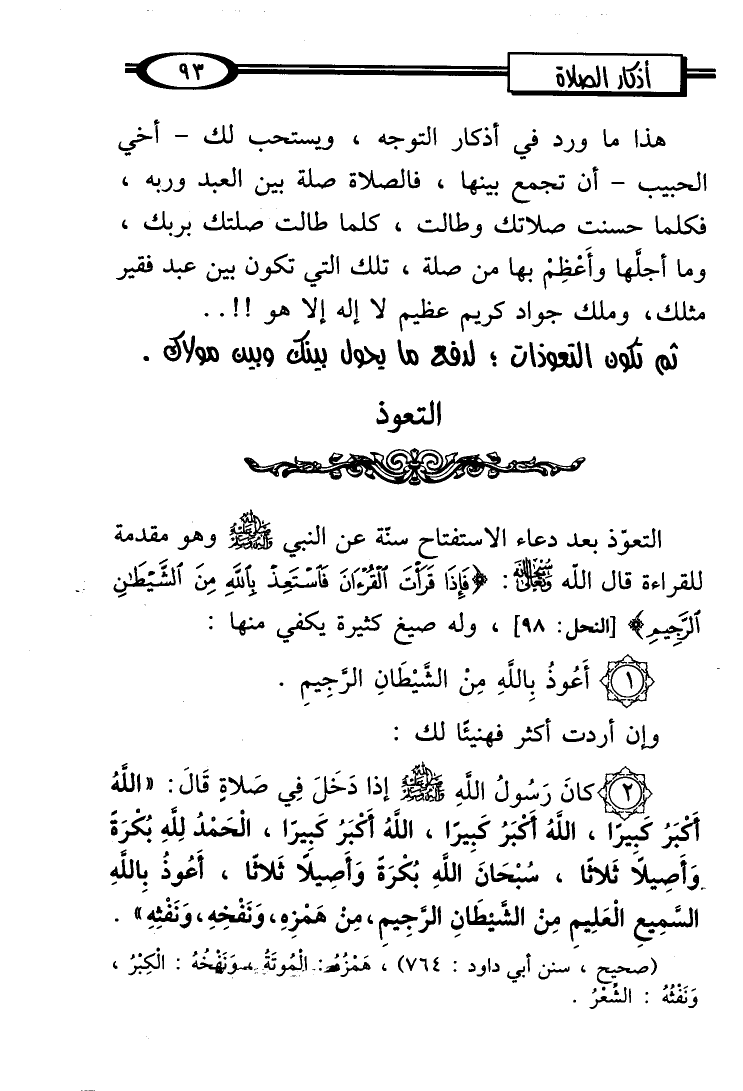 أذكار الصلاة
٩٣
هذا ما ورد في أذكار التوجه ، ويستحب لك – أخي
الحبيب – أن تجمع بينها ، فالصلاة صلة بين العبد وربه ،
فكلما حسنت صلاتك وطالت ، كلما طالت صلتك بربك ،
وما أجلَّها وأَعْظِمْ بها من صلة ، تلك التي تكون بين عبد فقير
مثلك، وملك جواد كريم عظيم لا إله إلا هو !!..
ثم تكون التعوذات ؛ لدفع ما يحول بينك وبين مولاك .
التعوذ
التعوّذ بعد دعاء الاستفتاح سنّة عن النبي ﷺ وهو مقدمة
للقراءة قال الله : ﴿فَإِذَا قَرَأْتَ ٱلْقُرْءَانَ فَٱسْتَعِذْ بِٱللَّهِ مِنَ ٱلشَّيْطَٰنِ
ٱلرَّجِيمِ﴾ [النحل: ٩٨] ، وله صيغ كثيرة يكفي منها :
١ أَعُوذُ بِاللَّهِ مِنْ الشَّيْطَانِ الرَّجِيمِ .
وإن أردت أكثر فهنيئًا لك :
٢ كانَ رَسُولُ اللَّهِ ﷺ إذا دَخَلَ فِي صَلاةٍ قَالَ: «اللَّهُ
أَكْبَرُ كَبِيرًا ، اللَّهُ أَكْبَرُ كَبِيرًا ، اللَّهُ أَكْبَرُ كَبِيرًا ، الْحَمْدُ لِلَّهِ بُكْرَةً
وَأَصِيلًا ثَلاثًا ، سُبْحَانَ اللَّهِ بُكْرَةً وَأَصِيلًا ثَلاثًا ، أَعُوذُ بِاللَّهِ
السَّمِيعِ الْعَلِيمِ مِنْ الشَّيْطَانِ الرَّجِيمِ، مِنْ هَمْزِهِ، وَنَفْخِهِ، وَنَفْثِهِ» .
(صحيح ، سنن أبي داود : ٧٦٤) ، هَمْزُهُ: الْمُوتَةُ ، وَنَفْخُهُ : الْكِبْرُ ،
وَنَفْثُهُ : الشِّعْرُ .